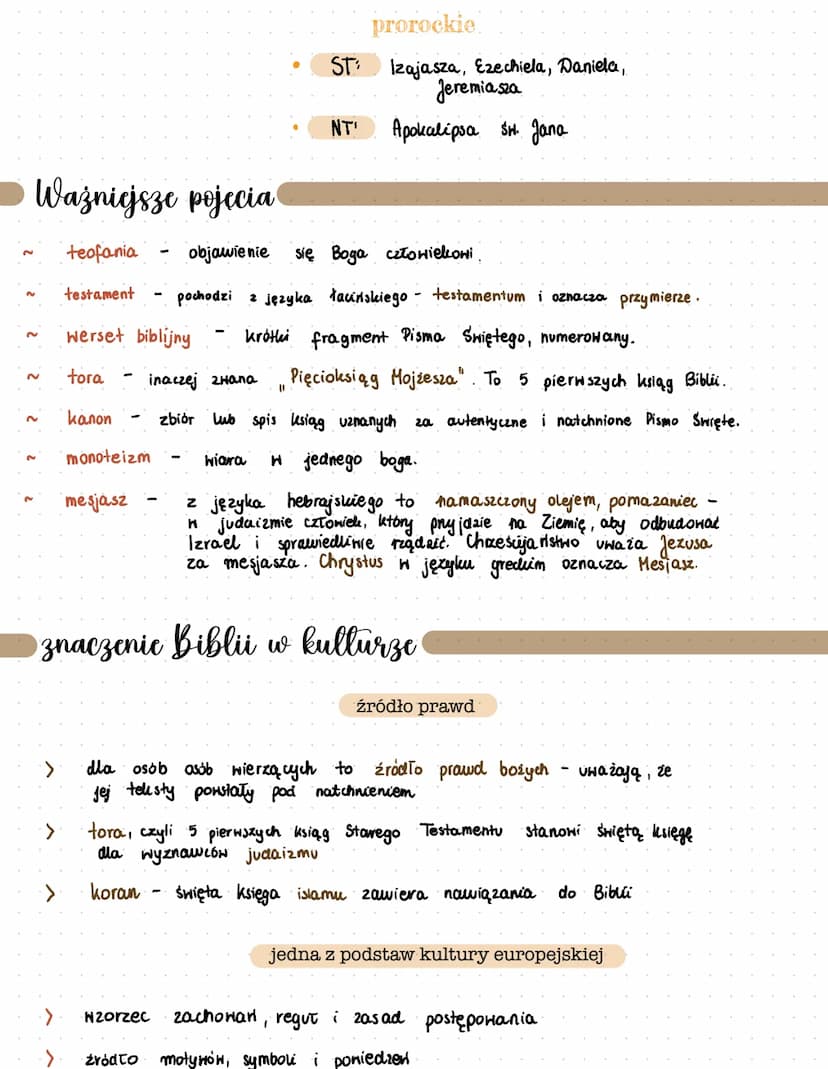 prorockie
• ST: Izajasza, Ezechiela, Daniela,
Jeremiasza
• NT: Apokalipsa św. Jana
Ważniejsze pojęcia
~ teofania – objawienie się Boga człowiekowi.
~ testament – pochodzi z języka łacińskiego – testamentum i oznacza przymierze.
~ werset biblijny – krótki fragment Pisma Świętego, numerowany.
~ tora – inaczej znana „Pięcioksiąg Mojżesza". To 5 pierwszych ksiąg Biblii.
~ kanon – zbiór lub spis ksiąg uznanych za autentyczne i natchnione Pismo Święte.
~ monoteizm – wiara w jednego boga.
~ mesjasz – z języka hebrajskiego to namaszczony olejem, pomazaniec –
w judaizmie człowiek, który przyjdzie na Ziemię, aby odbudować
Izrael i sprawiedlinie rządzić. Chrześcijaństwo uważa Jezusa
za mesjasza. Chrystus w języku greckim oznacza Mesjasz.
znaczenie Biblii w kulturze
źródło prawd
> dla osób osób wierzących to źródło prawd bożych – uważają, że
jej teksty powstały pod natchnieniem
> tora, czyli 5 pierwszych ksiąg Starego Testamentu stanowi świętą księgę
dla wyznawców judaizmu
> koran – święta księga islamu zawiera nawiązania do Biblii
jedna z podstaw kultury europejskiej
> wzorzec zachowań, reguł i zasad postępowania
> źródło motywów, symboli i poniedzeń